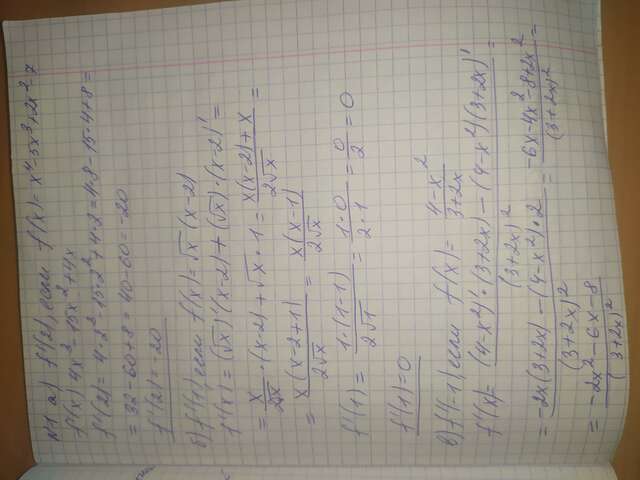 N1 а) f'(2) если f(x) = x⁴-5x³+2x²-7
f'(x) 4x³-15x²+4x
f'(2) = 4·2³-15·2²+4·2 = 4·8-15·4+8 =
= 32-60+8 = 40-60 = -20
f'(2) = -20
б) f'(1) если f(x) = √x (x-2)
f'(x) = (√x)'(x-2) + (√x)·(x-2)' =
= x/2√x · (x-2) + √x · 1 = x(x-2)+x / 2√x =
= x(x-2+1) / 2√x = x(x-1) / 2√x
f'(1) = 1·(1-1) / 2√1 = 1·0 / 2·1 = 0/2 = 0
f'(1) = 0
в) f'(-1) если f(x) = 4-x² / 3+2x
f'(x) = (4-x²)'·(3+2x) - (4-x²)(3+2x)' / (3+2x)² =
= -2x(3+2x) - (4-x²)·2 / (3+2x)² = -6x-4x²-8+2x² / (3+2x)² =
= -2x²-6x-8 / (3+2x)²